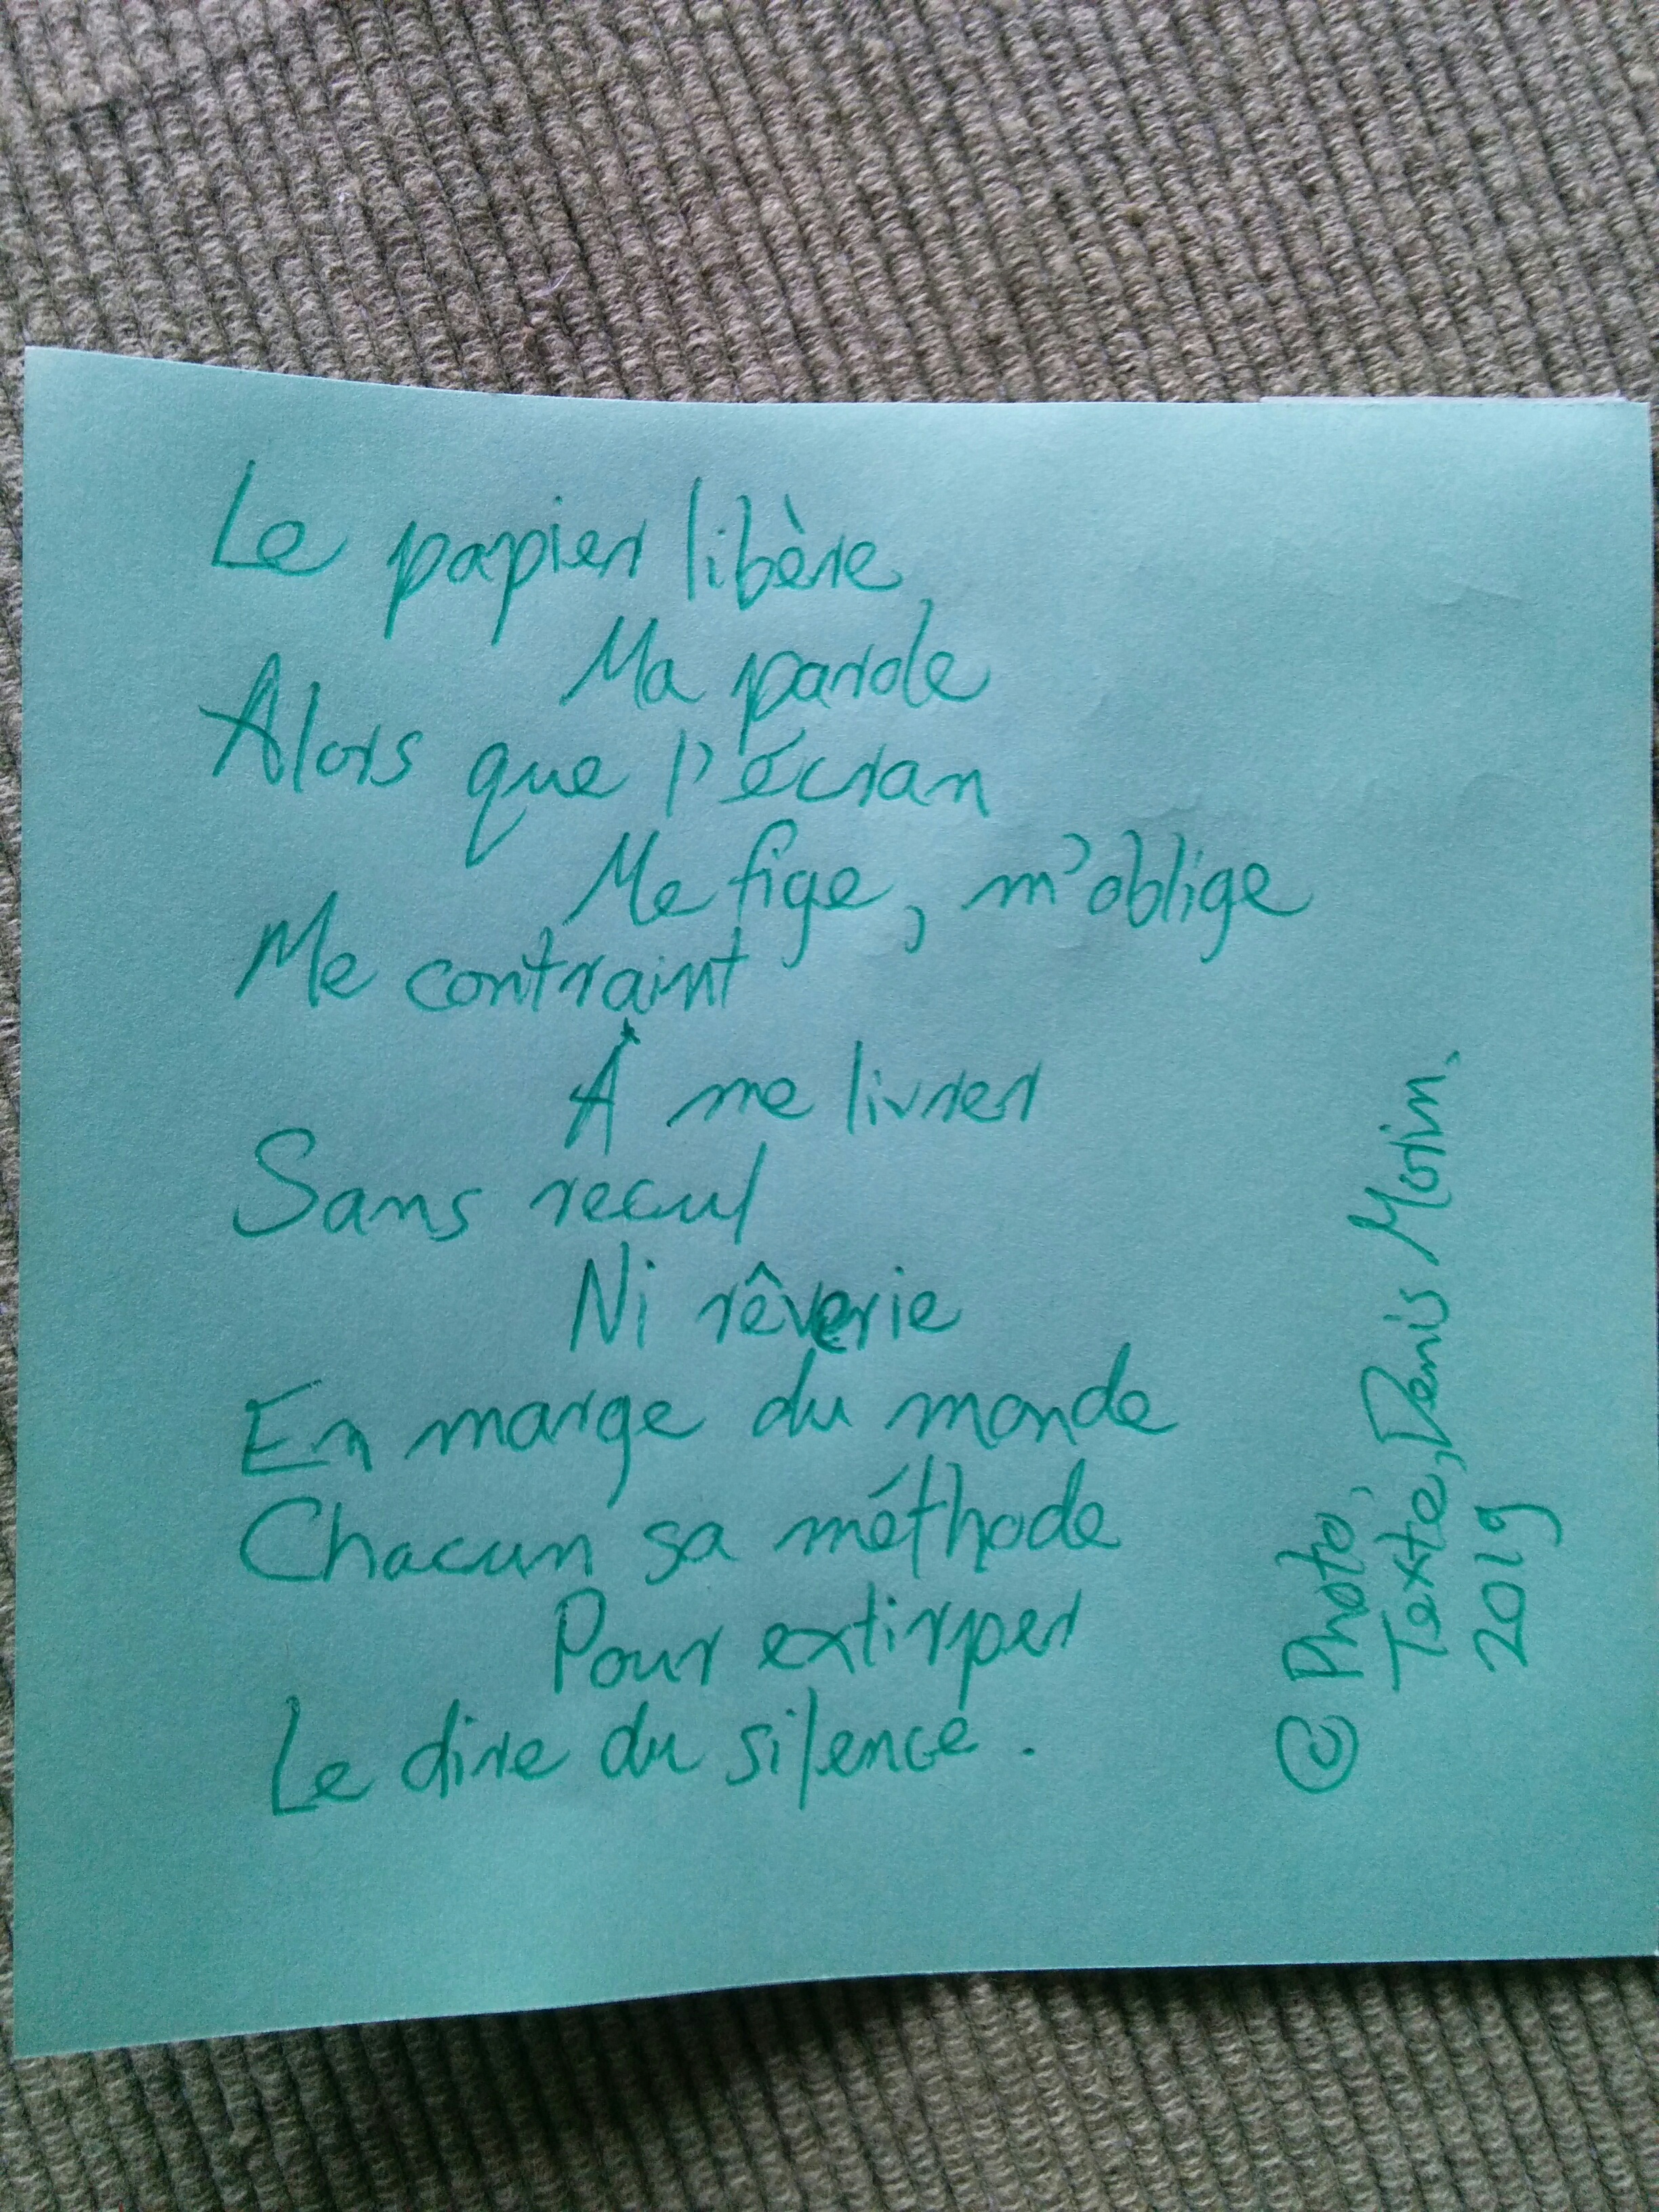 Le papier libère
Ma parole
Alors que l'écran
Me fige, m'oblige
Me contraint
À me livrer
Sans recul
Ni rêverie
En marge du monde
Chacun sa méthode
Pour extirper
Le dire du silence.
© Photo,
Texte, Denis Morin,
2019